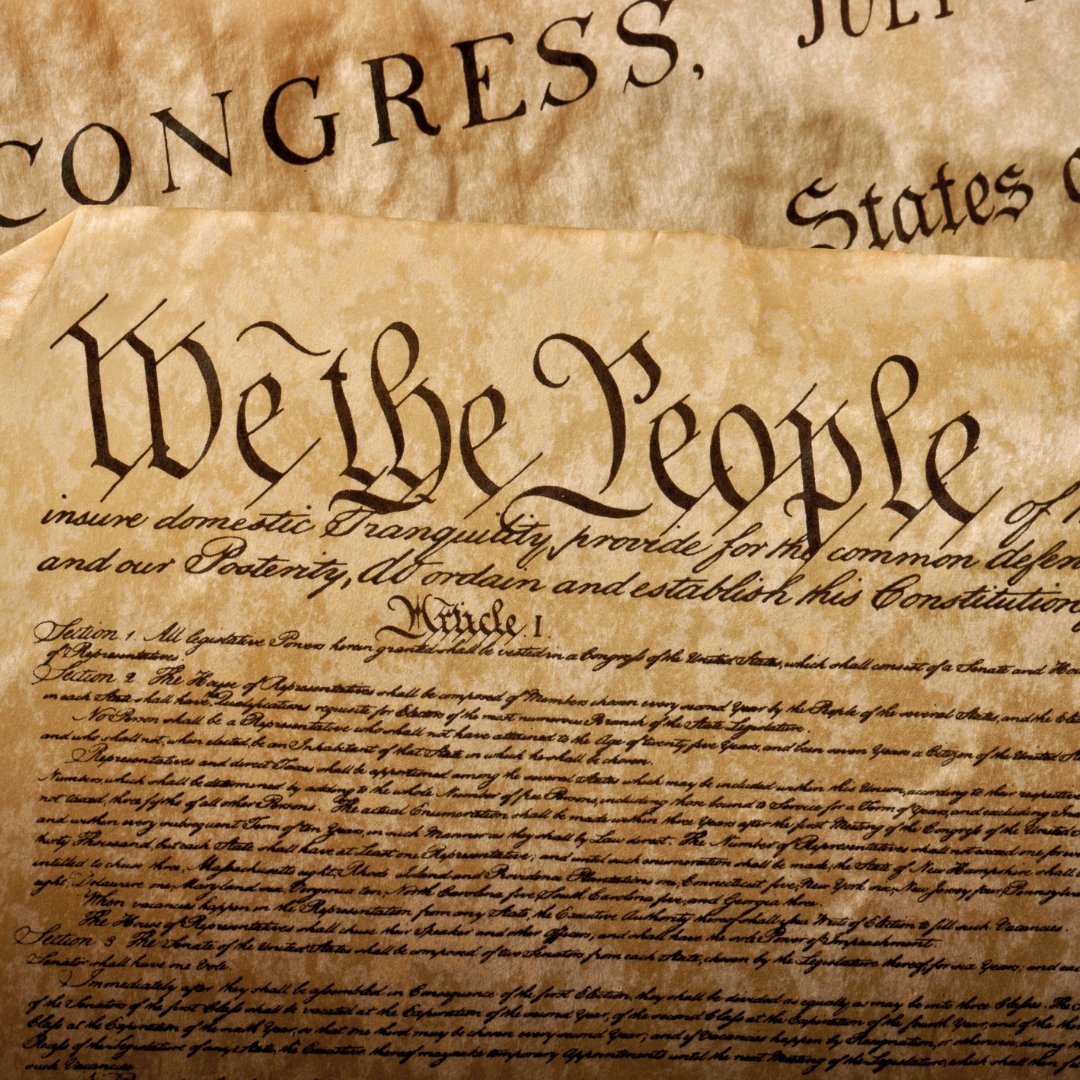 CONGRESS, JULY
States
We the People of
insure domestic Tranquility, provide for the common defen
and our Posterity, do ordain and establish this Constitution
Article I.
Section 1. All legislative Powers herein granted shall be vested in a Congress of the United States, which shall consist of a Senate and Hou
of Representatives.
Section 2. The House of Representatives shall be composed of Members chosen every second Year by the People of the several States, and the Ele
in each State shall have the Qualifications requisite for Electors of the most numerous Branch of the State Legislature.
No Person shall be a Representative who shall not have attained to the Age of twenty five Years, and been seven Years a Citizen of the United Sta
and who shall not, when elected, be an Inhabitant of that State in which he shall be chosen.
Representatives and direct Taxes shall be apportioned among the several States which may be included within this Union, according to their respective
Numbers, which shall be determined by adding to the whole Number of free Persons, including those bound to Service for a Term of Years, and excluding Ind
not taxed, three fifths of all other Persons. The actual Enumeration shall be made within three Years after the first Meeting of the Congress of the United
and within every subsequent Term of ten Years, in such Manner as they shall by Law direct. The Number of Representatives shall not exceed one for ever
thirty Thousand, but each State shall have at Least one Representative; and until such enumeration shall be made, the State of New Hampshire shall
entitled to chuse three, Massachusetts eight, Rhode Island and Providence Plantations one, Connecticut five, New York six, New Jersey four, Pennsylvan
eight, Delaware one, Maryland six, Virginia ten, North Carolina five, South Carolina five, and Georgia three.
When vacancies happen in the Representation from any State, the Executive Authority thereof shall issue Writs of Election to fill such Vacancies.
The House of Representatives shall chuse their Speaker and other Officers; and shall have the sole Power of Impeachment.
Section 3 The Senate of the United States shall be composed of two Senators from each State, chosen by the Legislature thereof, for six Years; and eac
Senator shall have one Vote.
Immediately after they shall be assembled in Consequence of the first Election, they shall be divided as equally as may be into three Classes. The
of the Senators of the first Class shall be vacated at the Expiration of the second Year, of the second Class at the Expiration of the fourth Year, and of the thi
Class at the Expiration of the sixth Year, so that one third may be chosen every second Year; and if Vacancies happen by Resignation, or otherwise, during
Recess of the Legislature of any State, the Executive thereof may make temporary Appointments until the next Meeting of the Legislature, which shall then
such Vacancies.